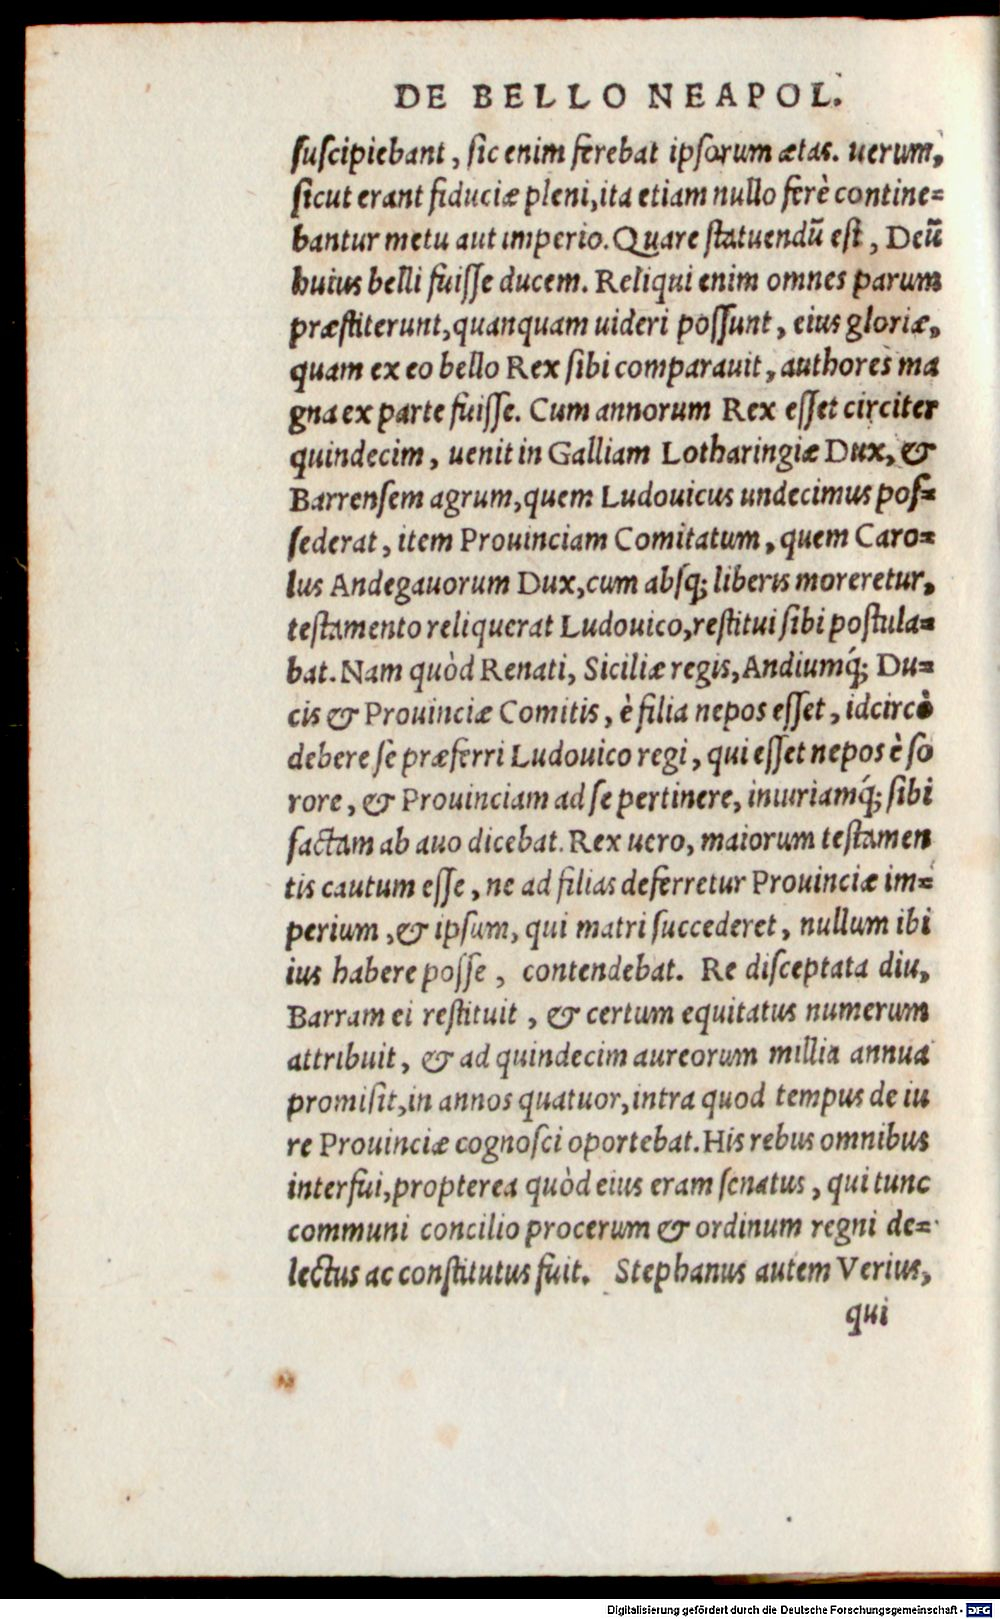 DE BELLO NEAPOL.
suscipiebant, sic enim ferebat ipsorum ætas. uerum,
sicut erant fiduciæ pleni, ita etiam nullo ferè contine=
bantur metu aut imperio. Quare statuendū est, Deū
huius belli fuisse ducem. Reliqui enim omnes parum
præstiterunt, quanquam uideri possunt, eius gloriæ,
quam ex eo bello Rex sibi comparauit, authores ma
gna ex parte fuisse. Cum annorum Rex esset circiter
quindecim, uenit in Galliam Lotharingiæ Dux, &
Barrensem agrum, quem Ludouicus undecimus pos=
sederat, item Prouinciam Comitatum, quem Caro=
lus Andegauorum Dux, cum absq; liberis moreretur,
testamento reliquerat Ludouico, restitui sibi postula=
bat. Nam quòd Renati, Siciliæ regis, Andiumq́; Du=
cis & Prouinciæ Comitis, è filia nepos esset, idcircò
debere se præferri Ludouico regi, qui esset nepos è so
rore, & Prouinciam ad se pertinere, iniuriamq́; sibi
factam ab auo dicebat. Rex uero, maiorum testamen
tis cautum esse, ne ad filias deferretur Prouinciæ im=
perium, & ipsum, qui matri succederet, nullum ibi
ius habere posse, contendebat. Re disceptata diu,
Barram ei restituit, & certum equitatus numerum
attribuit, & ad quindecim aureorum millia annua
promisit, in annos quatuor, intra quod tempus de iu
re Prouinciæ cognosci oportebat. His rebus omnibus
interfui, propterea quòd eius eram senatus, qui tunc
communi concilio procerum & ordinum regni de=
lectus ac constitutus fuit. Stephanus autem Verius,
qui
Digitalisierung gefördert durch die Deutsche Forschungsgemeinschaft - DFG